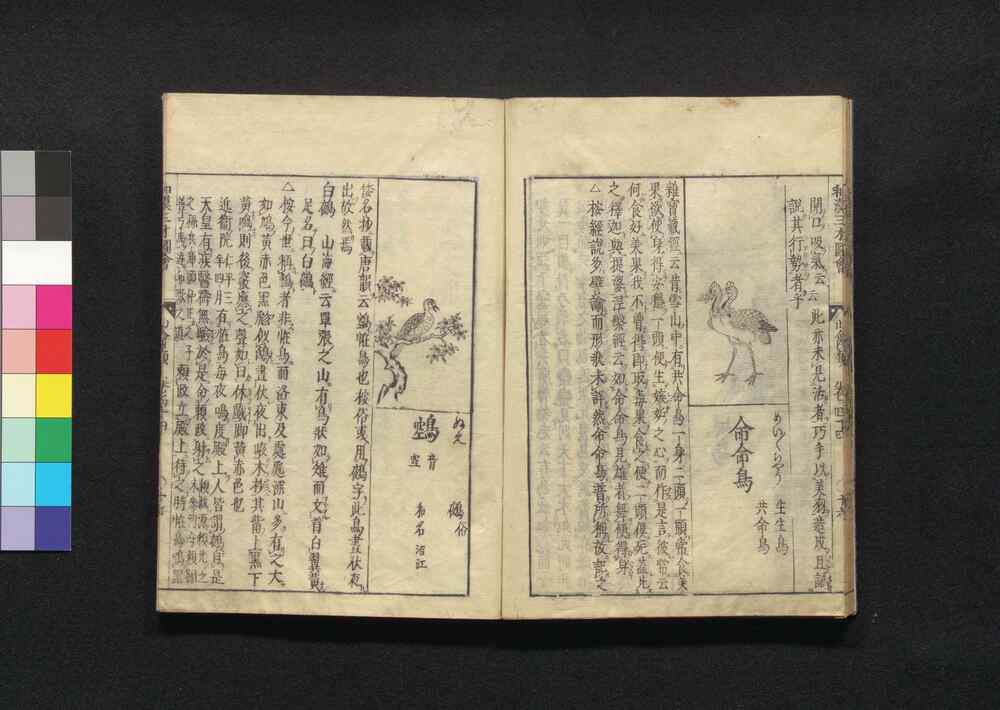 開口吸氣云云此亦未見法者巧手以美羽造成且誣
說其行勢者乎
命命鳥
生生鳥
共命鳥
雜寶藏經云昔雪山中有共命鳥一身二頭一頭常食美
果欲使身得安穩一頭便生嫉妬之心而作是言彼常云
何食好美果我不曾得即取毒果食之使二頭俱死
之釋迦與提婆涅槃經云如命命鳥見雄者舞便得身
△按經說多譬諭而形狀未詳然命命鳥普所稱故記之
ぬえ
鵼
音空
鵺俗
和名沼江
倭名抄載唐韻云鵼怪鳥也按俗或用鵺字此鳥晝伏夜
出故然焉
白鵺　山海經云單張之山有鳥狀如雉而文首白翼黃
足名曰白鵺
△按今世稱鵼者非怪鳥而洛東及處處深山多有之大
如鳩黃赤色黑彪似鴟晝伏夜出啄木杪其觜上黑下
黃鳴則後竅應之聲如曰休戲脚黃赤色也
近衞院仁平三年四月有怪鳥每夜鳴度殿上人皆謂鵺自是
天皇有疾醫療無驗於是命賴政射之